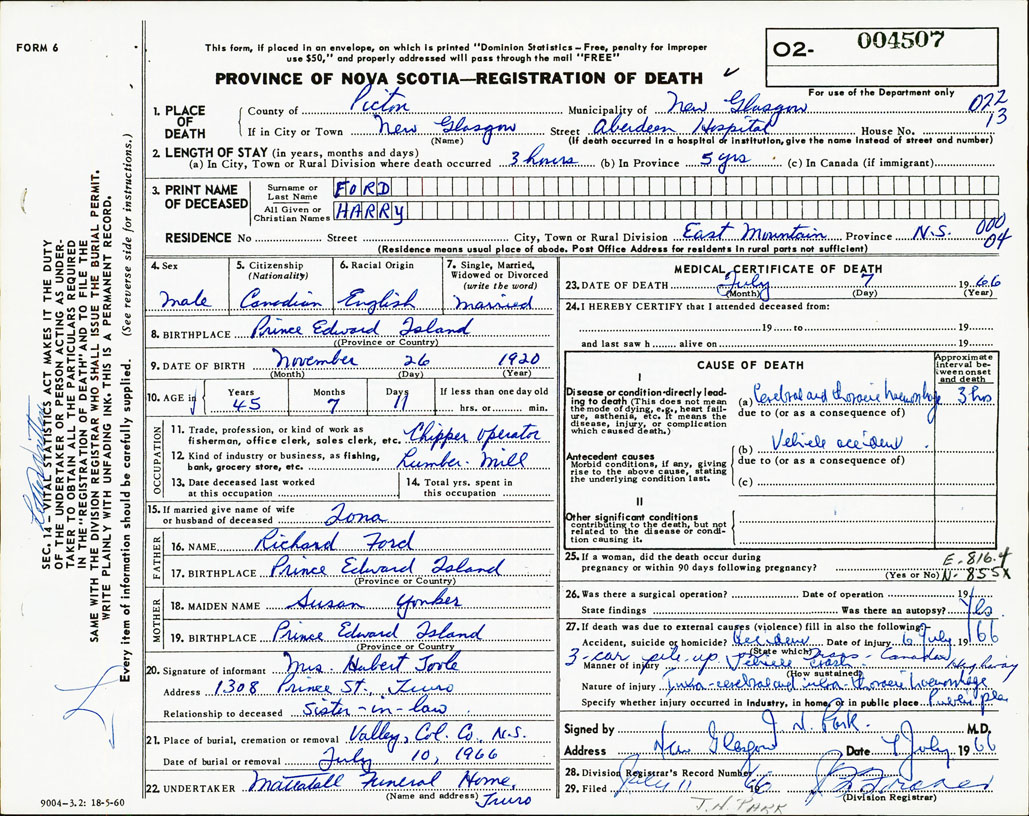 FORM 6
This form, if placed in an envelope, on which is printed "Dominion Statistics – Free, penalty for improper
use $50," and properly addressed will pass through the mail "FREE"
PROVINCE OF NOVA SCOTIA—REGISTRATION OF DEATH
02- 004507
For use of the Department only
022
13
1. PLACE OF DEATH
County of Pictou Municipality of New Glasgow
If in City or Town New Glasgow Street Aberdeen Hospital House No.
(Name) (If death occurred in a hospital or institution, give the name instead of street and number)
2. LENGTH OF STAY (in years, months and days)
(a) In City, Town or Rural Division where death occurred 3 hours (b) In Province 5 yrs (c) In Canada (if immigrant)
3. PRINT NAME OF DECEASED
Surname or Last Name FORD
All Given or Christian Names HARRY
RESIDENCE No Street City, Town or Rural Division East Mountain Province N.S.
000
04
(Residence means usual place of abode. Post Office Address for residents in rural parts not sufficient)
4. Sex Male
5. Citizenship (Nationality) Canadian
6. Racial Origin English
7. Single, Married, Widowed or Divorced (write the word) Married
8. BIRTHPLACE Prince Edward Island
(Province or Country)
9. DATE OF BIRTH November 26 1920
(Month) (Day) (Year)
10. AGE Years 45 Months 7 Days 11 If less than one day old hrs. or min.
OCCUPATION
11. Trade, profession, or kind of work as
fisherman, office clerk, sales clerk, etc. Chipper operator
12. Kind of industry or business, as fishing,
bank, grocery store, etc. Lumber Mill
13. Date deceased last worked
at this occupation
14. Total yrs. spent in
this occupation
15. If married give name of wife
or husband of deceased Iona
FATHER
16. NAME Richard Ford
17. BIRTHPLACE Prince Edward Island
(Province or Country)
MOTHER
18. MAIDEN NAME Susan Yonker
19. BIRTHPLACE Prince Edward Island
(Province or Country)
20. Signature of informant Mrs. Hubert Toole
Address 1308 Prince St., Truro
Relationship to deceased Sister-in-law
21. Place of burial, cremation or removal Valley, Col. Co., N.S.
Date of burial or removal July 10, 1966
22. UNDERTAKER Mattatall Funeral Home,
(Name and address) Truro
MEDICAL CERTIFICATE OF DEATH
23. DATE OF DEATH July 7 1966
(Month) (Day) (Year)
24. I HEREBY CERTIFY that I attended deceased from:
19 to 19
and last saw h alive on 19
CAUSE OF DEATH
Approximate interval between onset and death
I
Disease or condition directly leading to death (This does not mean the mode of dying, e.g., heart failure, asthenia, etc. It means the disease, injury, or complication which caused death.)
(a) Cerebral and thoracic haemorrhage 3 hrs
due to (or as a consequence of)
Antecedent causes
Morbid conditions, if any, giving rise to the above cause, stating the underlying condition last.
(b) Vehicle accident
due to (or as a consequence of)
(c)
II
Other significant conditions
contributing to the death, but not related to the disease or condition causing it.
25. If a woman, did the death occur during
pregnancy or within 90 days following pregnancy?
(Yes or No)
E.816.4
N.855X
26. Was there a surgical operation? Date of operation 19
State findings Was there an autopsy? Yes
27. If death was due to external causes (violence) fill in also the following:
Accident, suicide or homicide? Accident Date of injury 6 July 1966
(State which)
3-car pile-up Trans-Canada Highway
Manner of injury Vehicle crash
(How sustained)
Nature of injury Intra-cerebral and intra-thoracic haemorrhage
Specify whether injury occurred in industry, in home, or in public place Public place
Signed by J N. Park M.D.
Address New Glasgow Date 7 July 1966
28. Division Registrar's Record Number
29. Filed July 11 1966
(Division Registrar)
J.N. PARK
SEC. 14 – VITAL STATISTICS ACT MAKES IT THE DUTY
OF THE UNDERTAKER OR PERSON ACTING AS UNDER-
TAKER TO OBTAIN ALL THE PARTICULARS REQUIRED
IN THE "REGISTRATION OF DEATH" AND TO FILE THE
SAME WITH THE DIVISION REGISTRAR WHO SHALL ISSUE THE BURIAL PERMIT.
WRITE PLAINLY WITH UNFADING INK. THIS IS A PERMANENT RECORD.
Every item of information should be carefully supplied. (See reverse side for instructions.)
9004–3.2: 18-5-60